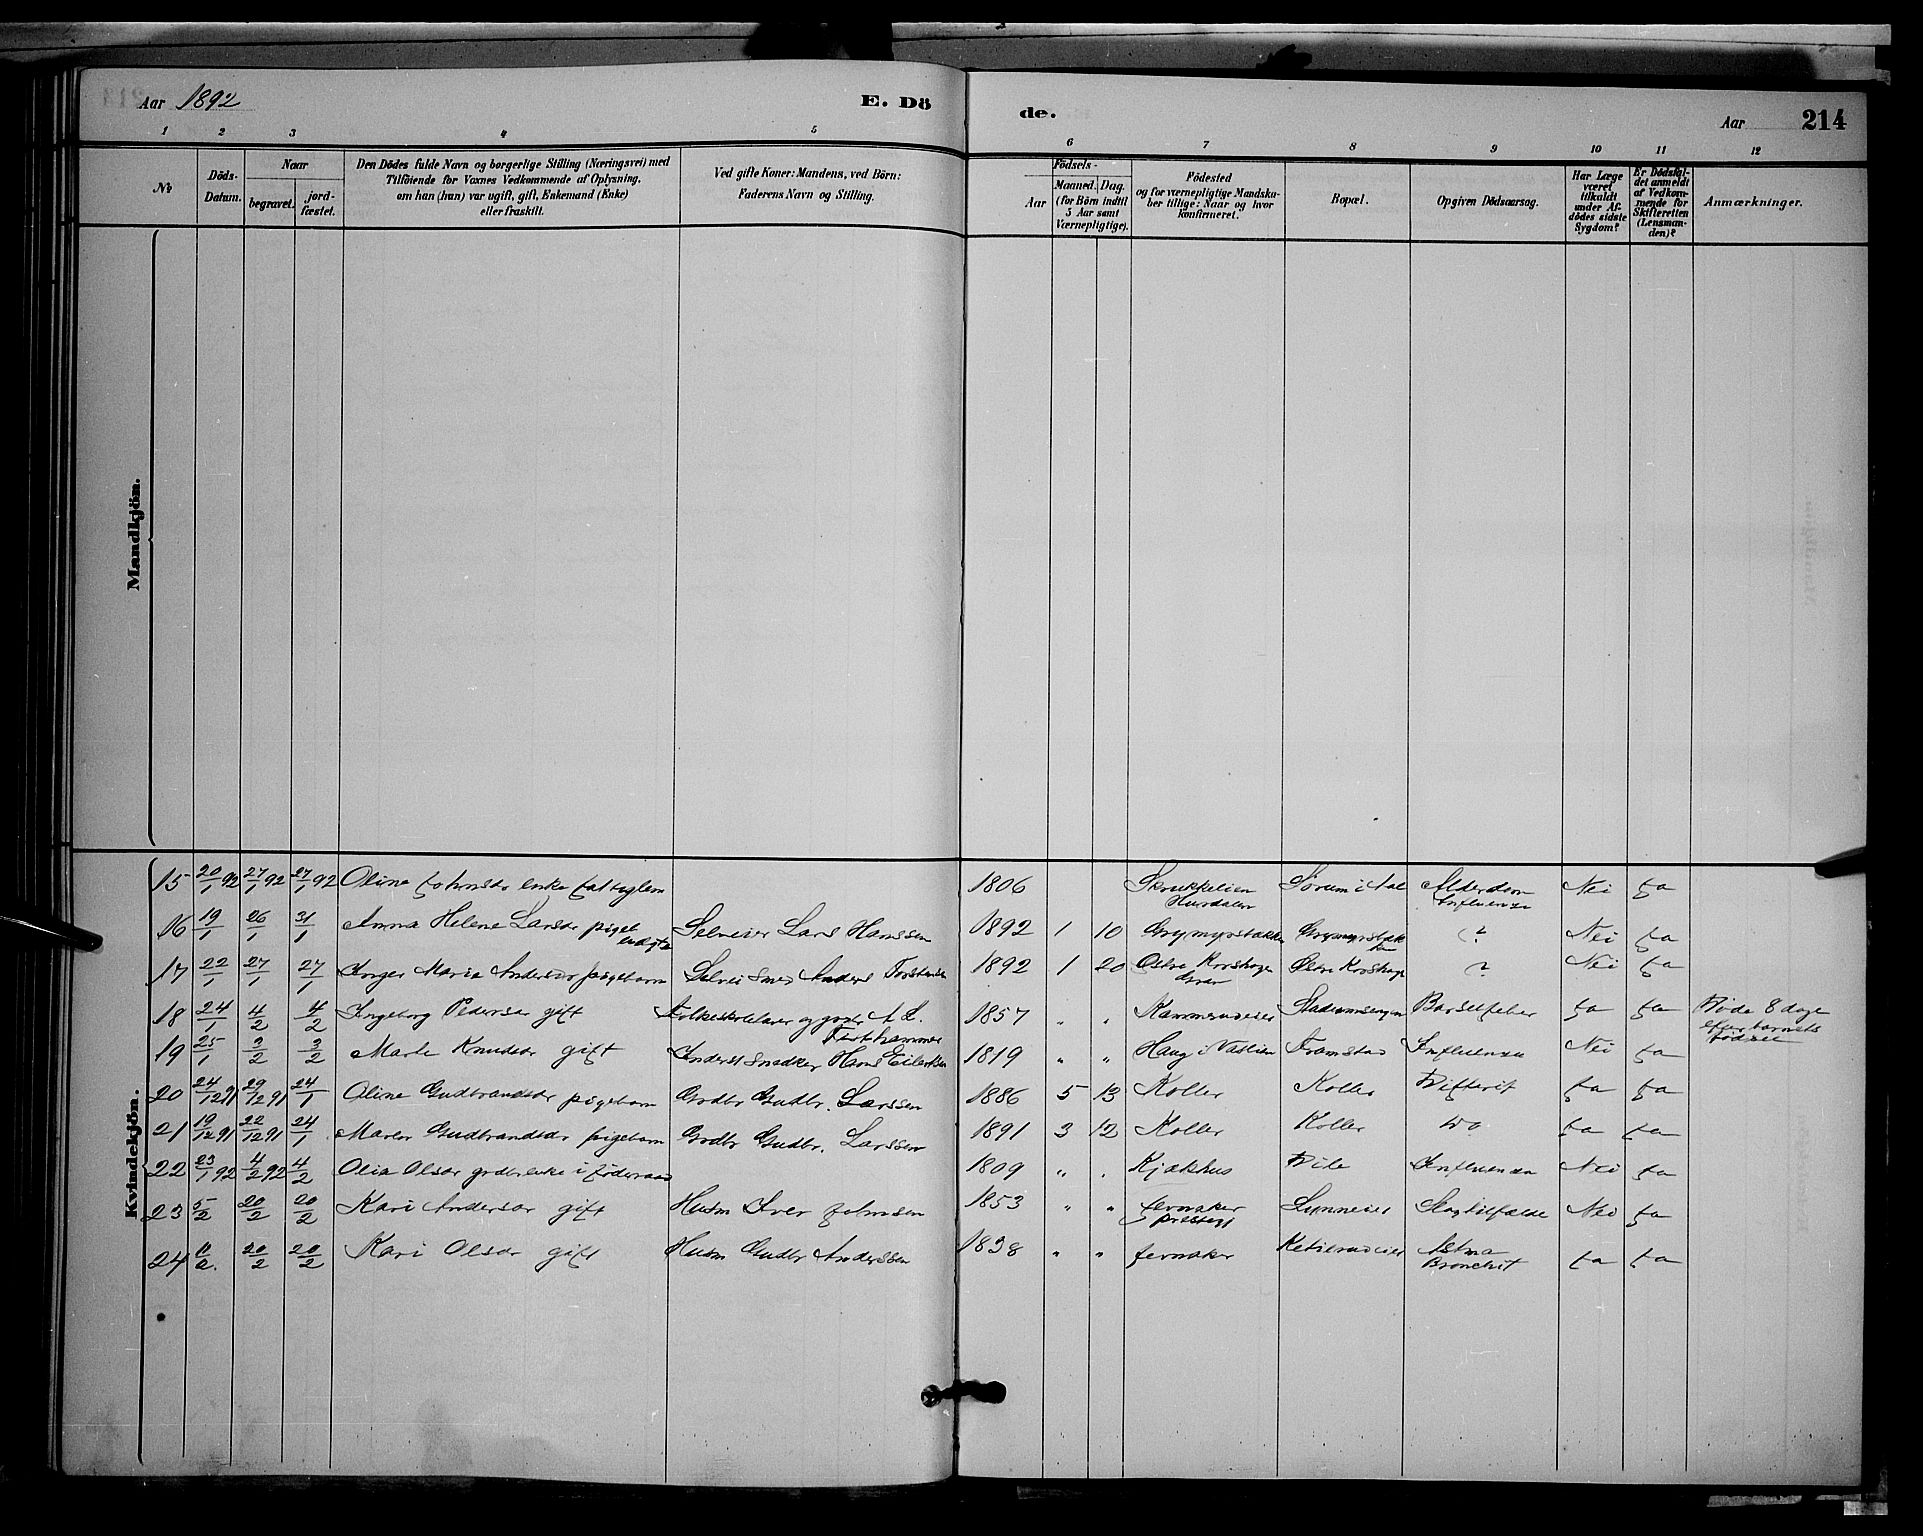 Aar 1892
E. Dö
de.
Aar
214
1 2 3 4 5 6 7 8 9 10 11 12
№
Döds-Datum.
Naar
begravet.
jord-fæstet.
Den Dödes fulde Navn og borgerlige Stilling (Næringsvei) med
Tilföiende for Voxnes Vedkommende af Oplysning,
om han (hun) var ugift, gift, Enkemand (Enke)
eller fraskilt.
Ved gifte Koner: Mandens, ved Börn:
Faderens Navn og Stilling.
Födsels-
Aar
Maaned. Dag.
(for Börn indtil
5 Aar samt
Værnepligtige).
Födested
og for værnepligtige Mandska-
ber tillige: Naar og hvor
konfirmeret.
Bopæl.
Opgiven Dödsaarsag.
Har Læge
været
tilkaldt
under Af-
dödes sidste
Sygdom?
Er Dödsfal-
det anmeldt
af Vedkom-
mende for
Skifteretten
(Lensman-
den)?
Anmærkninger.
Mandkjön.
Kvindekjön.
15 20/1 92 27/1 92 27/1 92 Oline Johnsdr enke fattiglem 1806 Skrukkelien Hurdalen Sørum i Aal Alderdom Influenza Nei Ja
16 19/1 26/1 31/1 Anna Helene Larsdr Selveier Lars Hanssen 1892 1 10 Grymyrstøkken ? Nei Ja
17 22/1 27/1 27/1 Inger Maria Andersdr pigebarn Selvei Smed Anders 1892 1 20 Østre ? Nei Ja
18 24/1 4/2 4/2 Ingeborg Pedersdr gift Folkeskolelærer og A. L. 1857 " " Barselfeber Ja Ja Døde 8 dage
efter barnets
fødsel
19 25/1 3/2 3/2 Marte Knudsdr gift Inderst Snedker Hans Eilertsen 1819 " " Haug i Framstad Influenza Nei Ja
20 24/12 91 29/12 91 24/1 Oline Gudbrandsdr pigebarn Grdbr Gudbr. Larssen 1886 5 13 Koller Koller Difterit Ja Ja
21 19/12 91 22/12 91 24/1 Maren Gudbrandsdr pigebarn Grdbr Gudbr. Larssen 1891 3 12 Koller Koller Do Ja Ja
22 23/1 92 4/2 92 4/2 Olia Olsdr grdbr enke i føderaad 1809 " . Kjækhus Influenza Nei Ja
23 5/2 20/2 20/2 Kari Andersdr gift Husm Iver Johnsen 1853 " " Jevnaker præsteg Slagtilfælde Nei Ja
24 20/2 20/2 Kari Olsdr gift Husm Gudbr Anderssen 1838 " " Jevnaker Astma Bronchit Ja Ja